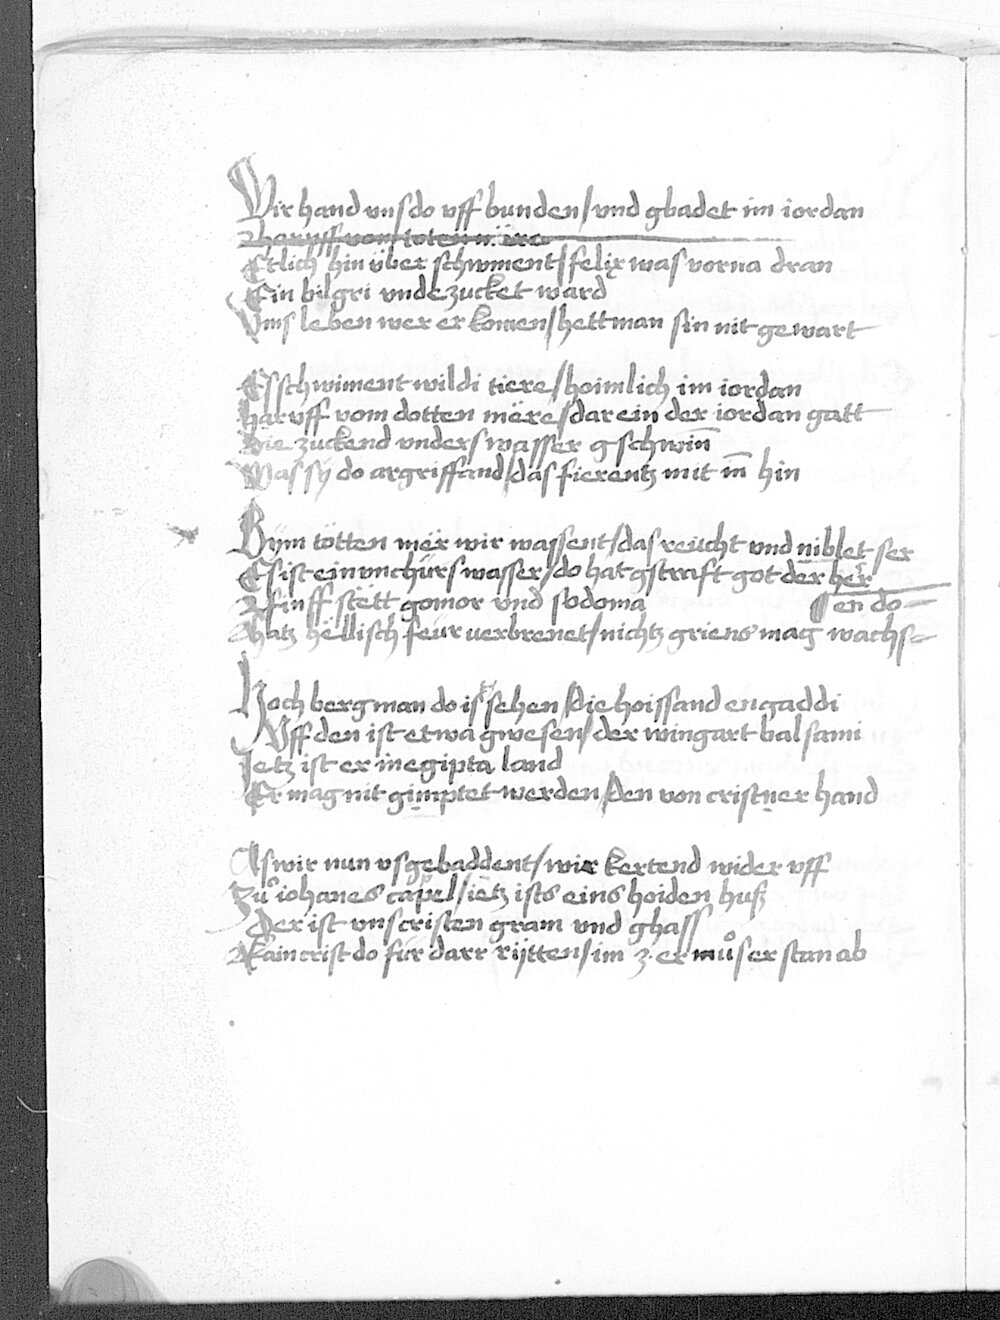 Wir hand uns do uff bunden / und gbadet im iordan
Haruff vom toten mere
Etlich hin über schwiment / felix was vorna dran
Ein bilgri undezucket ward
Ums leben wer er komen / hett man sin nit gewart
Es schwiment wildi tiere / hoimlich im iordan
Haruff vom dotten mëre / darein der iordan gatt
Die zuckend unders wasser gschwin̄
Was sy do argriffand / das fierentz mit in̄ hin
Bÿm totten mër wir wassent / das reücht und niblet ser
Es ist ein unchürs wasser / do hat gstraft got der her
Finff stett gomor und sodoma
¶ en do
Hatz hëllisch feür verbrenet / nichtz griens mag wachs
Hoch berg man do is sehen / Die hoissand engaddi
Uff den ist etwa gwesen / der wingart balsami
Ietz ist er in egipta land
Er mag nit gimptet werden / Den von cristner hand
As wir nun usgebaddent / wir kertend wider uff
Zuͦ iohanes capel / ietz ists eins hoiden huß
Der ist uns cristen gram und ghass
Kain crist do für darr rÿtten / im z. er muͦs er stan ab